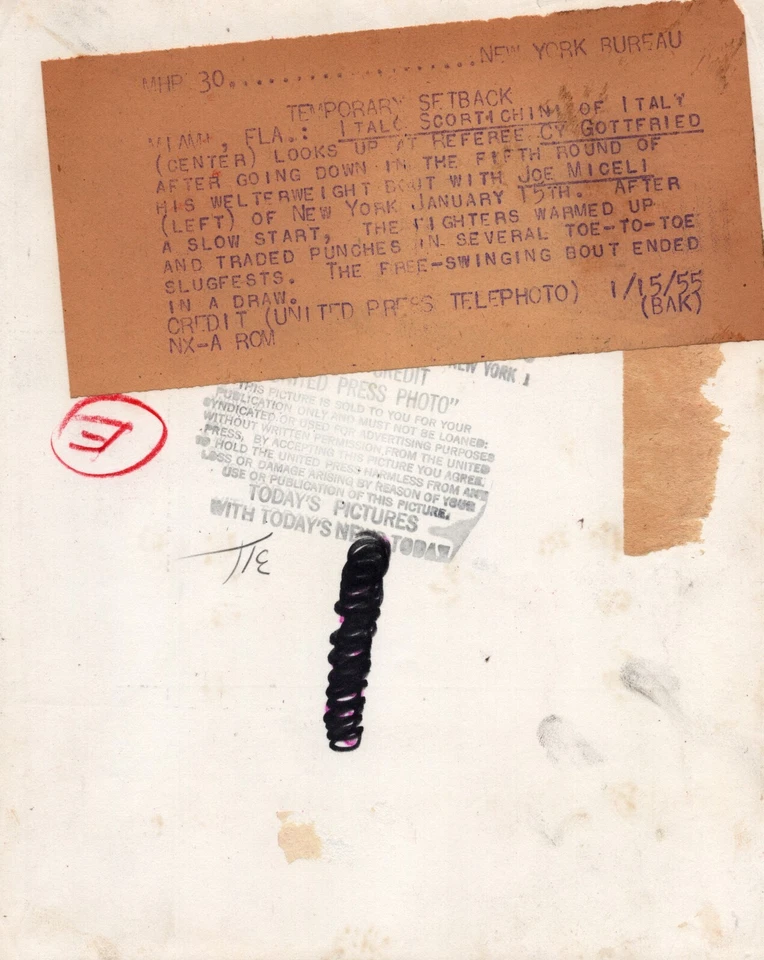 MHP 30....................NEW YORK BUREAU
TEMPORARY SETBACK
MIAMI, FLA.: ITALO SCORTICHINI OF ITALY
(CENTER) LOOKS UP AT REFEREE CY GOTTFRIED
AFTER GOING DOWN IN THE FIFTH ROUND OF
HIS WELTERWEIGHT BOUT WITH JOE MICELI
(LEFT) OF NEW YORK JANUARY 15TH. AFTER
A SLOW START, THE FIGHTERS WARMED UP
AND TRADED PUNCHES IN SEVERAL TOE-TO-TOE
SLUGFESTS. THE FREE-SWINGING BOUT ENDED
IN A DRAW.
CREDIT (UNITED PRESS TELEPHOTO) 1/15/55
(BAK)
NX-A ROM
NEW YORK 1
CREDIT
UNITED PRESS PHOTO"
THIS PICTURE IS SOLD TO YOU FOR YOUR
PUBLICATION ONLY AND MUST NOT BE LOANED:
SYNDICATED OR USED FOR ADVERTISING PURPOSES
WITHOUT WRITTEN PERMISSION FROM THE UNITED
PRESS, BY ACCEPTING THIS PICTURE YOU AGREE
TO HOLD THE UNITED PRESS HARMLESS FROM ANY
LOSS OR DAMAGE ARISING BY REASON OF YOUR
USE OR PUBLICATION OF THIS PICTURE.
TODAY'S PICTURES
WITH TODAY'S NEWS TODAY
E